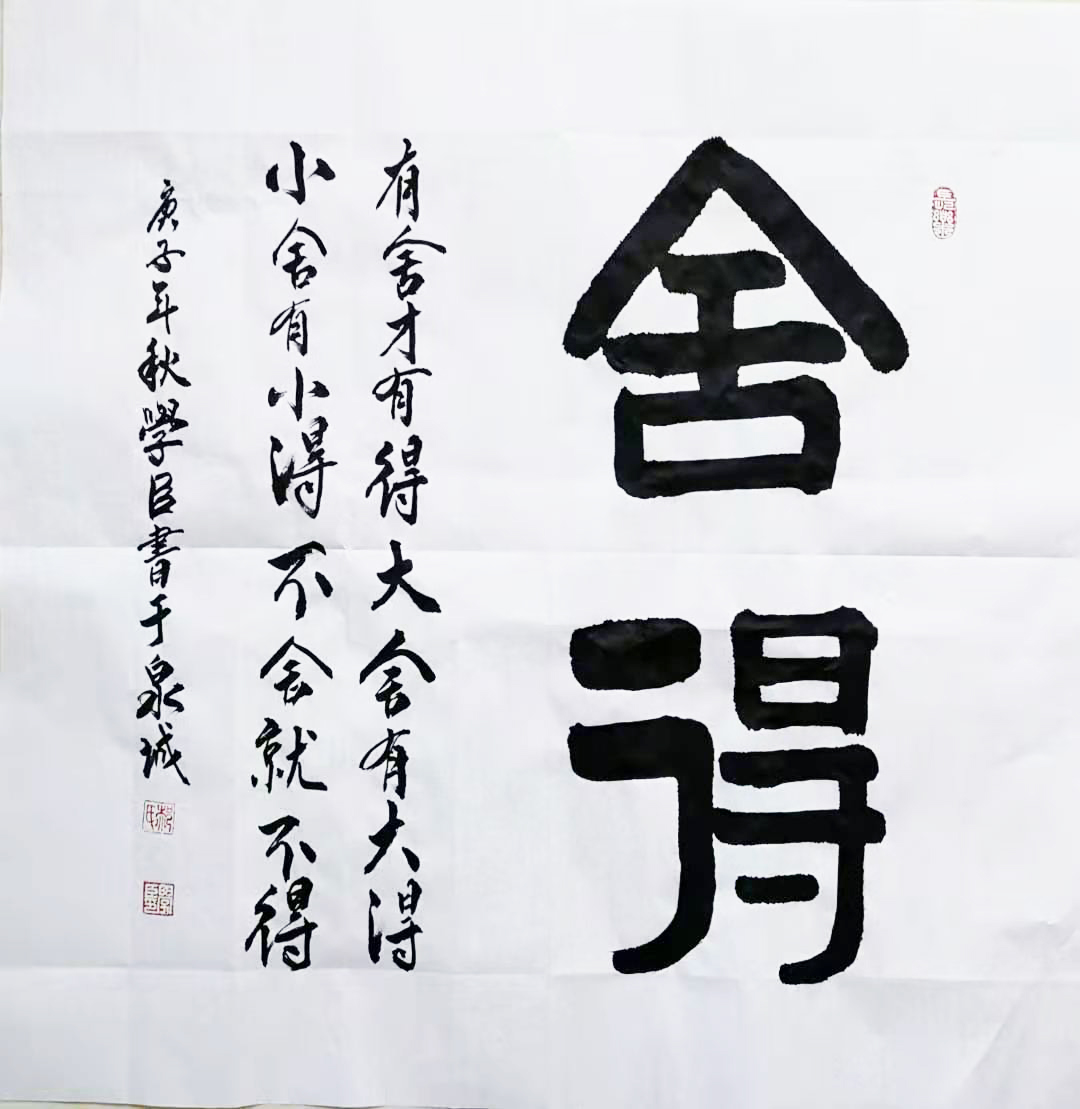 舍得
有舍才有得大舍有大得
小舍有小得不舍就不得
庚子年秋學臣書于泉城